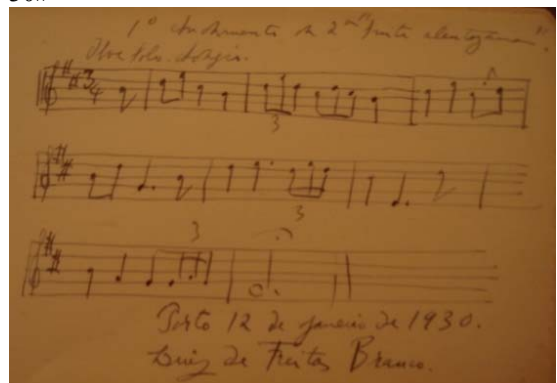 1º Andamento da 2ª "Suite alentejana".
Oboe solo. Adagio.
3
4
3
3
3
Porto 12 de janeiro de 1930.
Luiz de Freitas Branco.